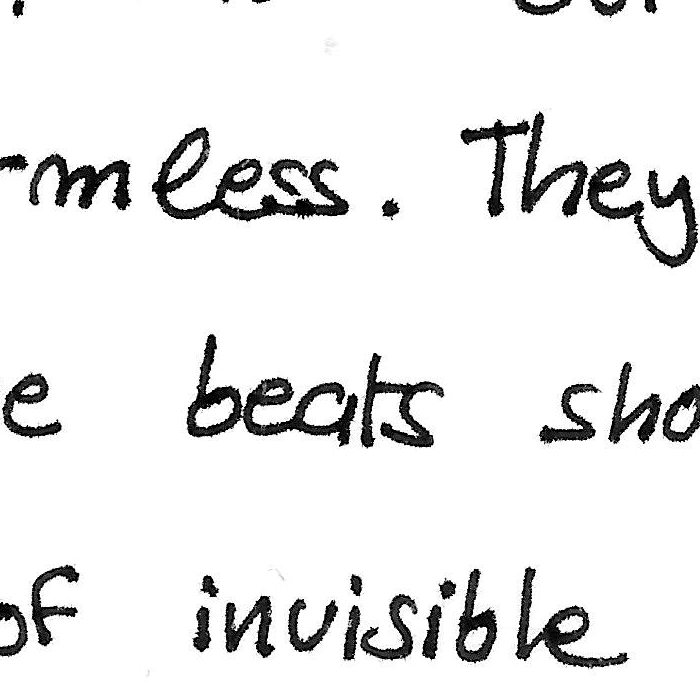 rmless. They
e beats sho
of invisible